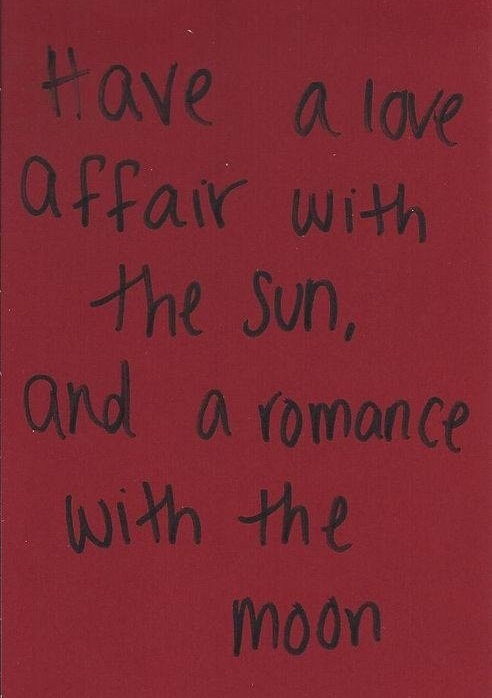 Have a love
affair with
the sun,
and a romance
with the
moon